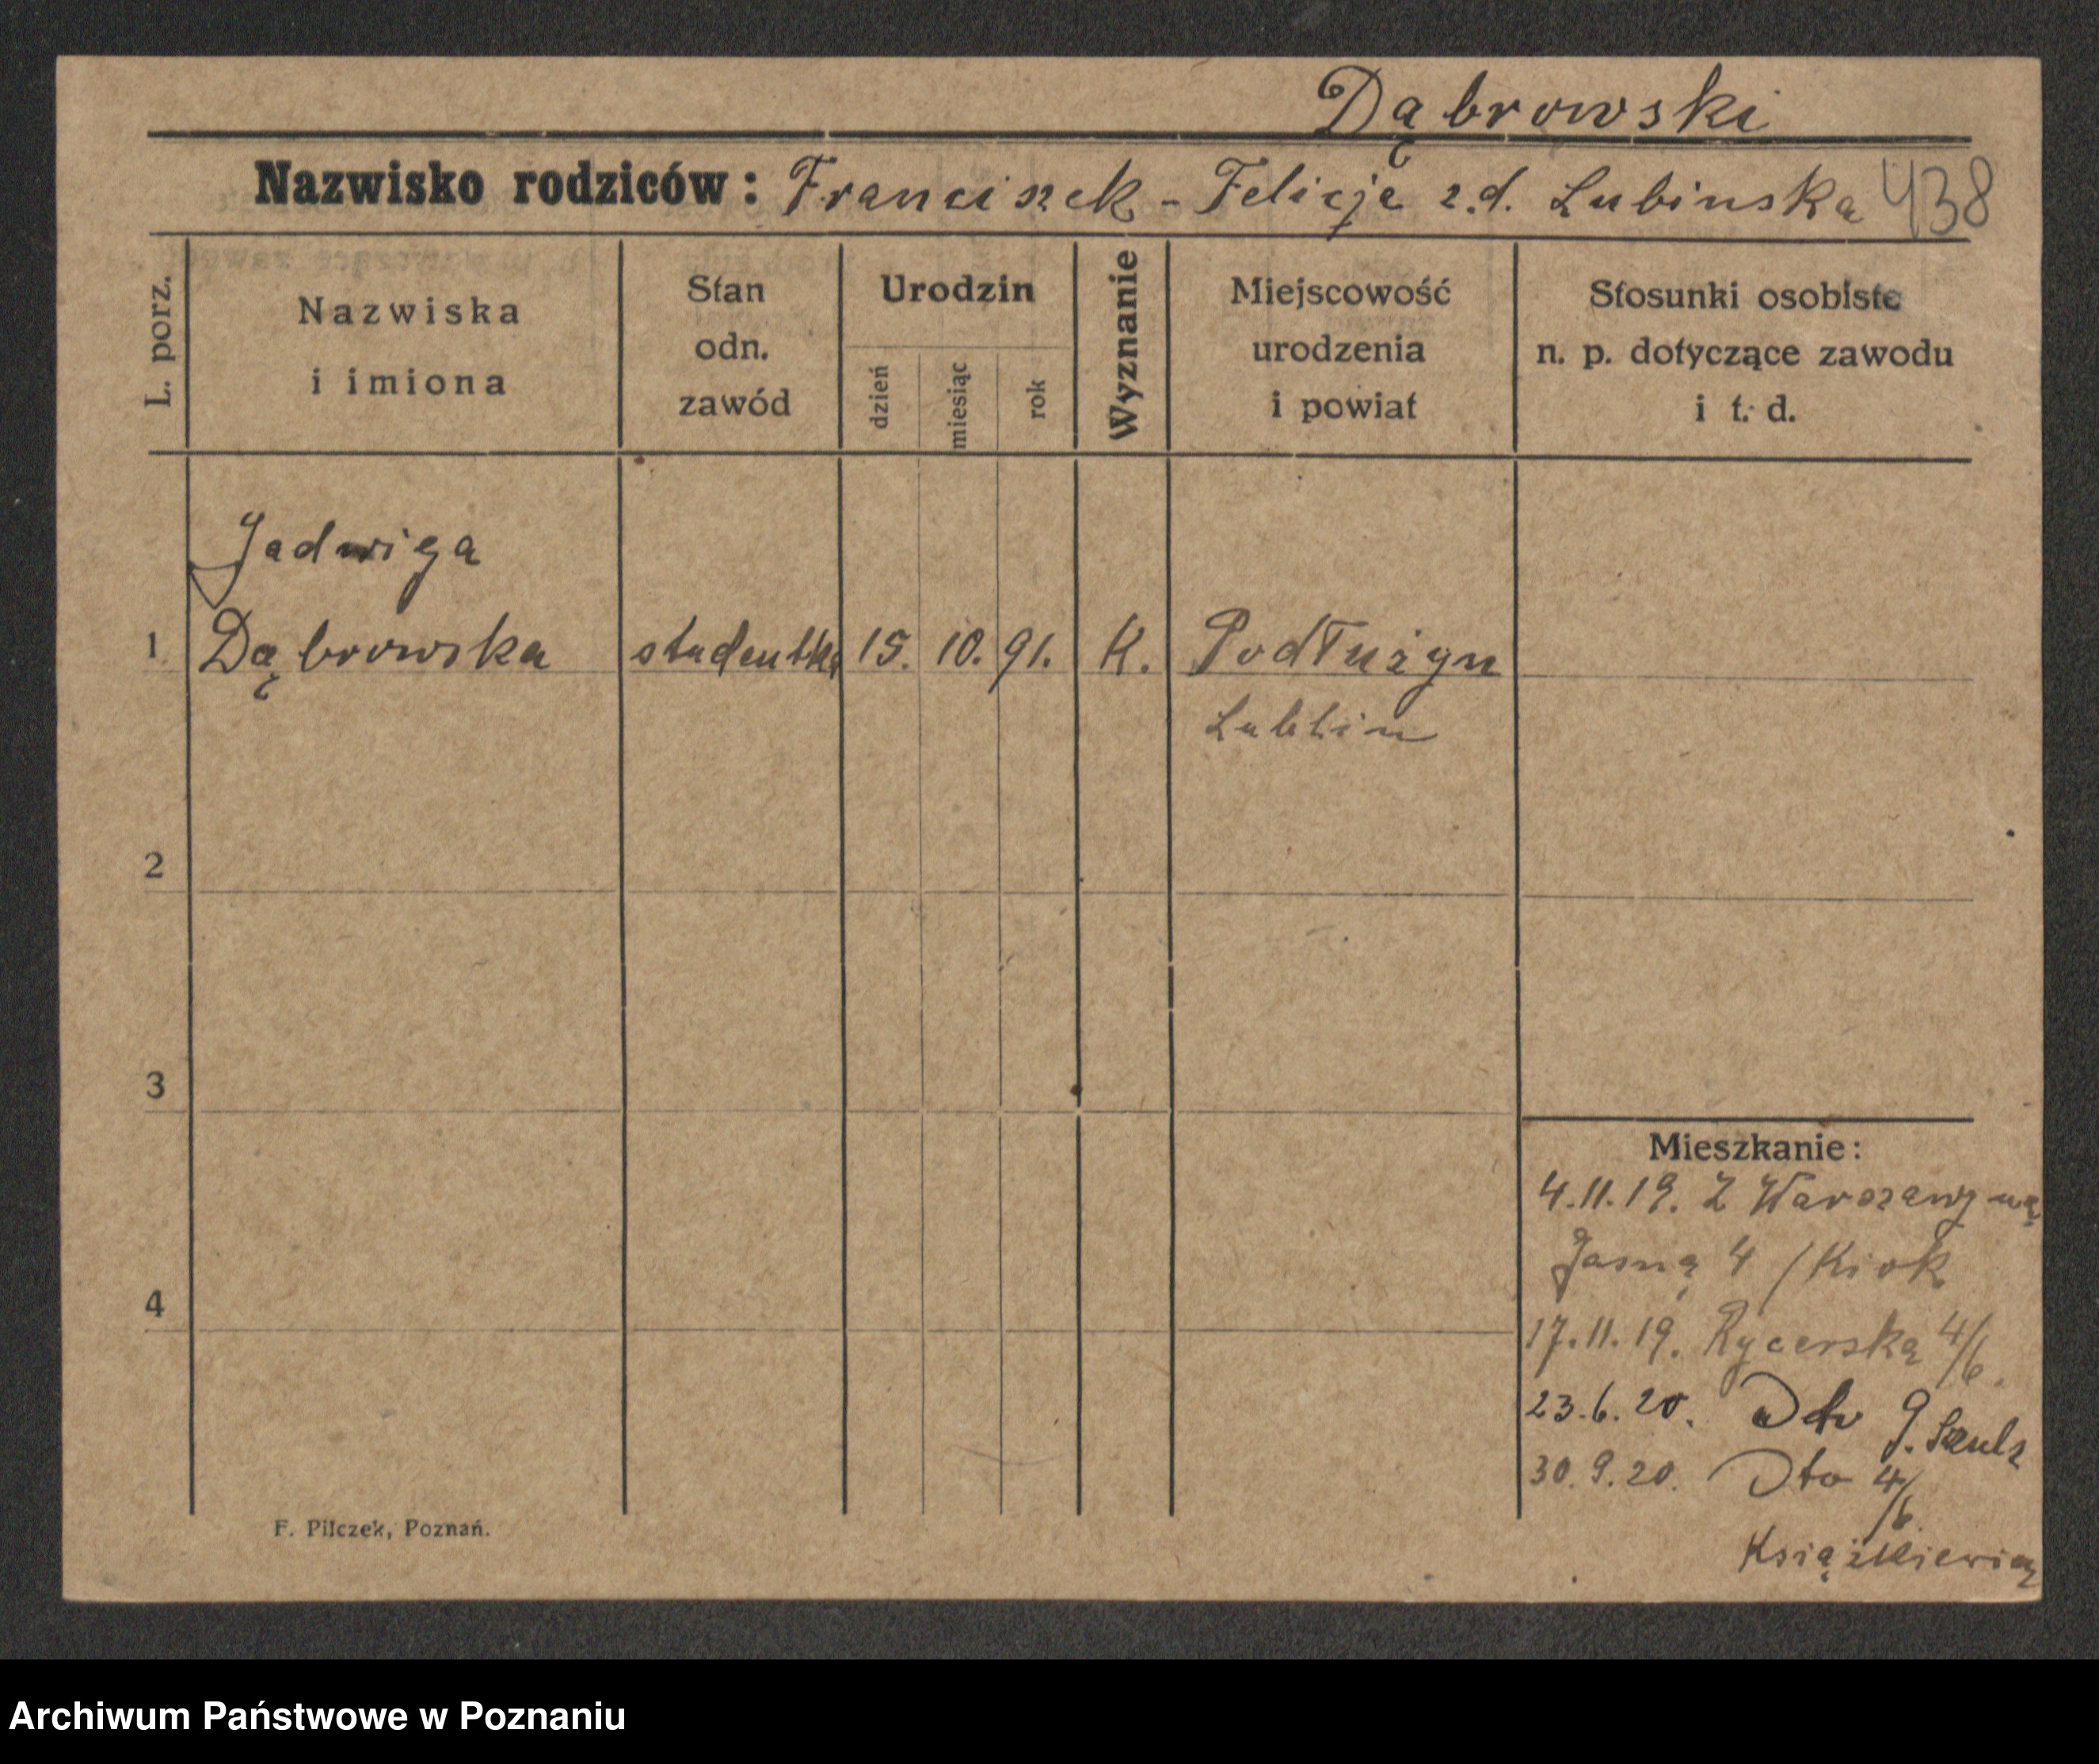 Dąbrowski
Nazwisko rodziców: Franciszek - Felicja z.d. Lubinska 438
L. porz.
Nazwiska
i imiona
Stan
odn.
zawód
Urodzin
dzień
miesiąc
rok
Wyznanie
Miejscowość
urodzenia
i powiat
Stosunki osobiste
n. p. dotyczące zawodu
i t. d.
Jadwiga
1 Dąbrowska studentka 15. 10. 91. K. Podłużyn
Lublin
2
3
4
Mieszkanie:
4.11.19. Z Warszawy na
Jasną 4 / Kiok
17.11.19. Rycerską 4/6.
23.6.20. Dto 9. Szulz
30.9.20. Dto 4/6
Książkiewicz
F. Pilczek, Poznań.
Archiwum Państwowe w Poznaniu